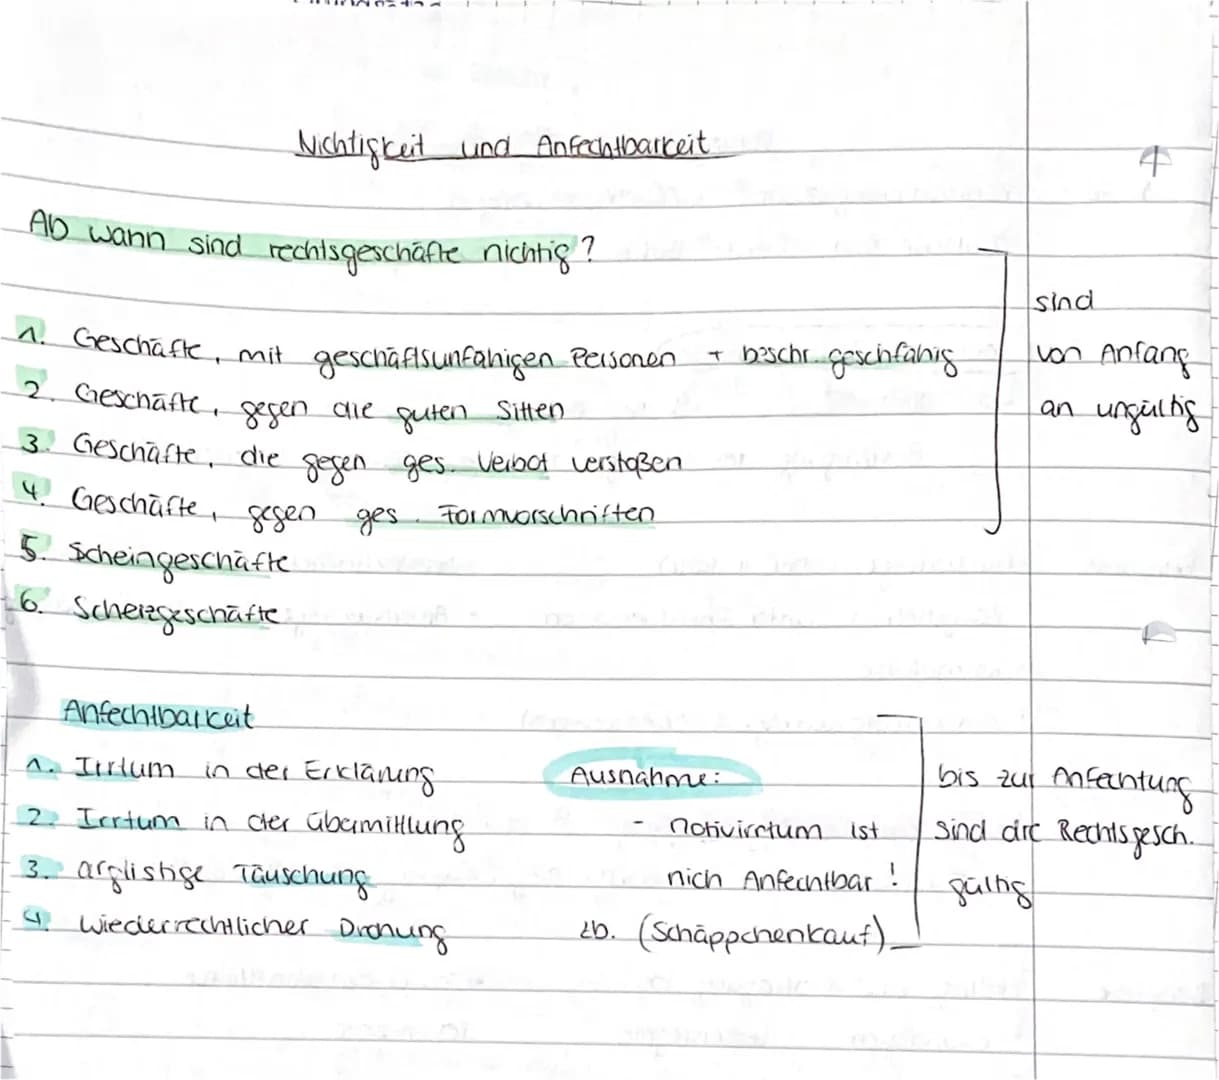 Nichtigkeit und Anfechtbarkeit
Ab wann sind rechtsgeschäfte nichtig?
1. Geschäfte, mit geschäftsunfähigen Personen + beschr. geschfähig
2. Geschäfte, gegen die guten Sitten
3. Geschäfte, die gegen ges. Verbot verstoßen
4. Geschäfte, gegen ges. Formvorschriften
5. Scheingeschäfte
6. Scherzgeschäfte
sind
von Anfang
an ungültig
Anfechtbarkeit
1. Irrtum in der Erklärung
2. Irrtum in der übermittlung
3. arglistige Täuschung
4. wiederrechtlicher Drohung
Ausnahme:
- Motivirrtum ist
nich Anfechtbar!
zb. (Schäppchenkauf)
bis zur Anfechtung
sind die Rechtsgesch.
gültig